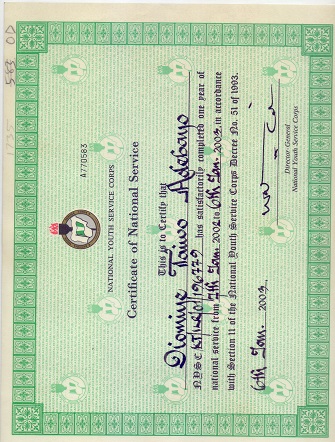 NATIONAL YOUTH SERVICE CORPS
A770583
Certificate of National Service
This is to Certify that
Taiwo Adebayo
NYSC has satisfactorily completed one year of
national service from 7th Jan. 2002 to 6th Jan. 2003, in accordance
with Section 11 of the National Youth Service Corps Decree No. 51 of 1993.
6th Jan. 2003.
Director General
National Youth Service Corps